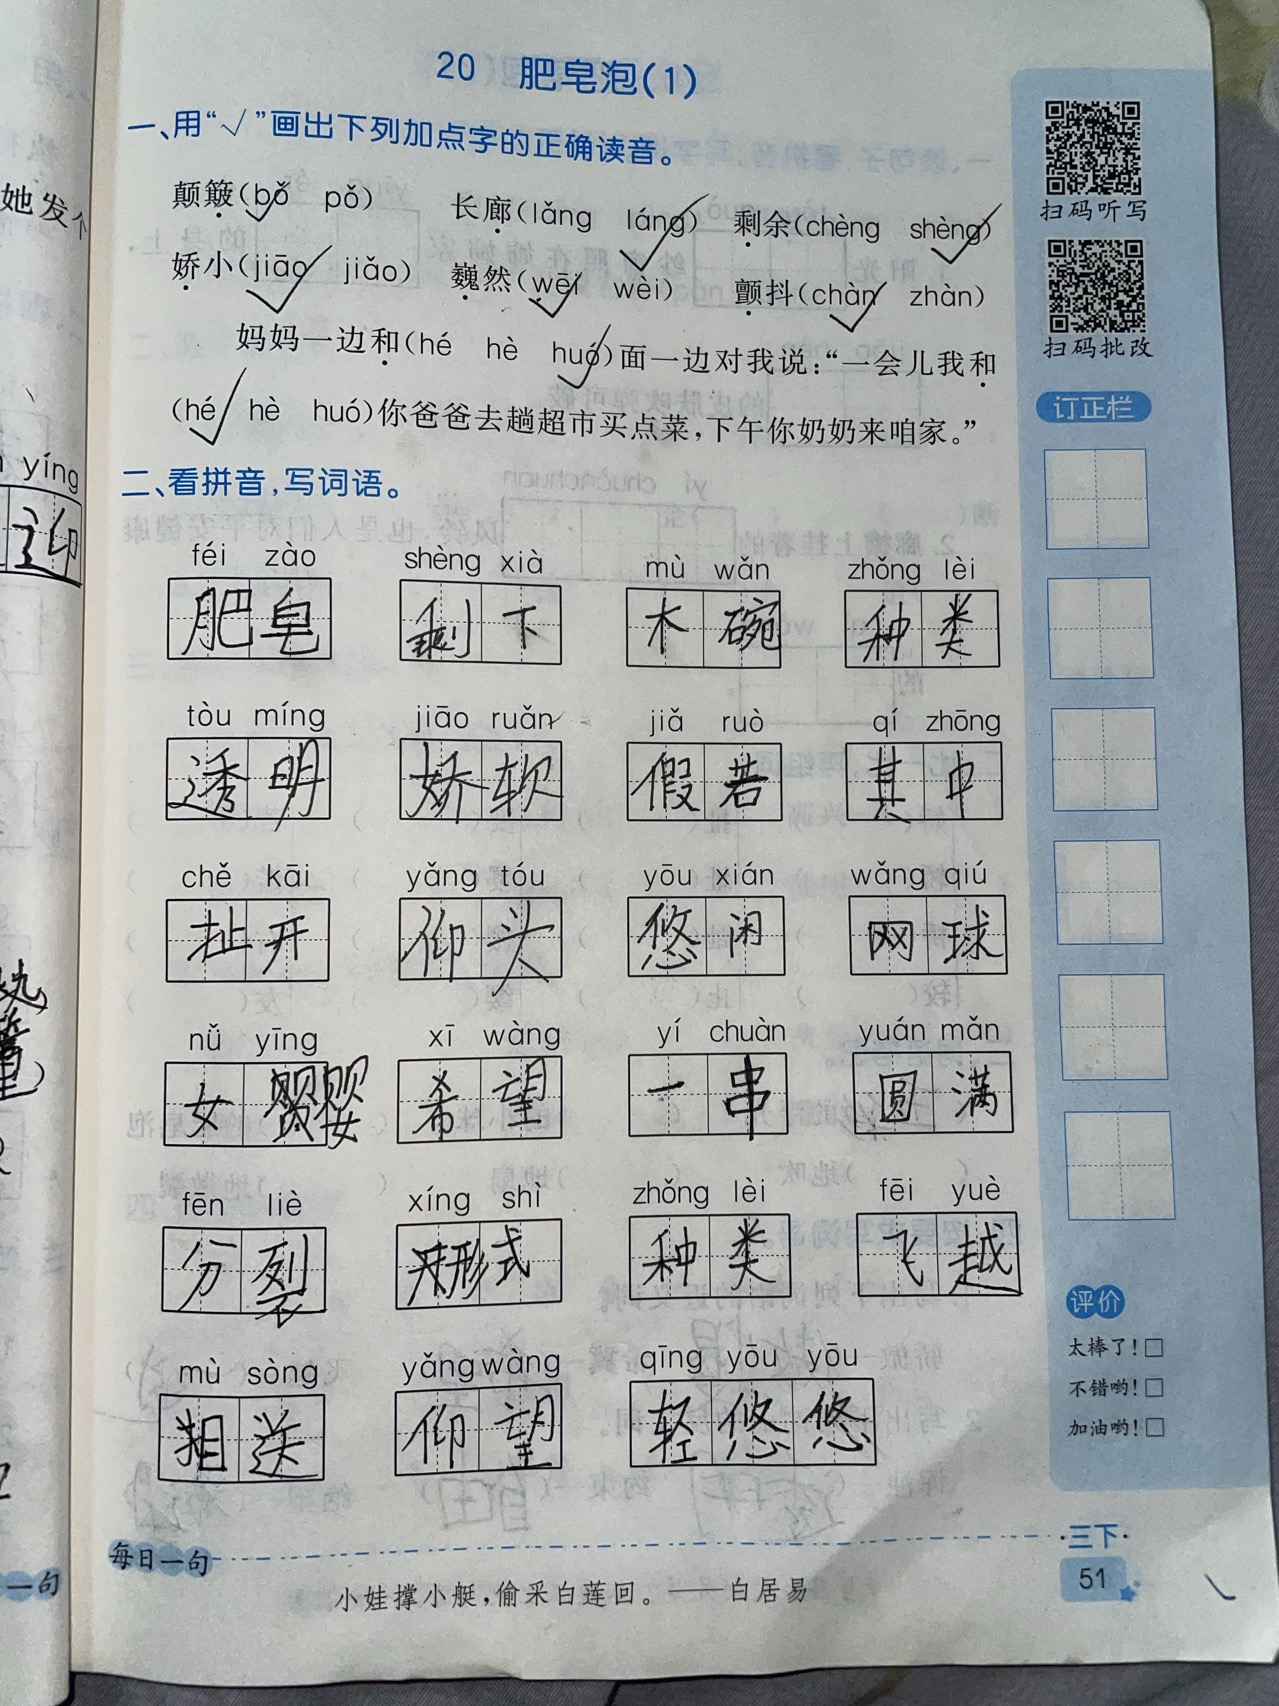 20 肥皂泡(1)
一、用“√”画出下列加点字的正确读音。
颠簸(bǒ pǒ) 长廊(lǎng láng) 剩余(chèng shèng)
娇小(jiāo jiǎo) 巍然(wēi wèi) 颤抖(chàn zhàn)
妈妈一边和(hé hè huó)面一边对我说:“一会儿我和
(hé hè huó)你爸爸去趟超市买点菜,下午你奶奶来咱家。”
二、看拼音,写词语。
féi zào shèng xià mù wǎn zhǒng lèi
肥皂 剩下 木碗 种类
tòu míng jiāo ruǎn jiǎ ruò qí zhōng
透明 娇软 假若 其中
chě kāi yǎng tóu yōu xián wǎng qiú
扯开 仰头 悠闲 网球
nǚ yīng xī wàng yí chuàn yuán mǎn
女婴 希望 一串 圆满
fēn liè xíng shì zhǒng lèi fēi yuè
分裂 形式 种类 飞越
mù sòng yǎng wàng qīng yōu yōu
目送 仰望 轻悠悠
每日一句
小娃撑小艇,偷采白莲回。 ——白居易
扫码听写
扫码批改
订正栏
评价
太棒了!□
不错哟!□
加油哟!□
·三下·
51
她发个
yíng
迎
一句